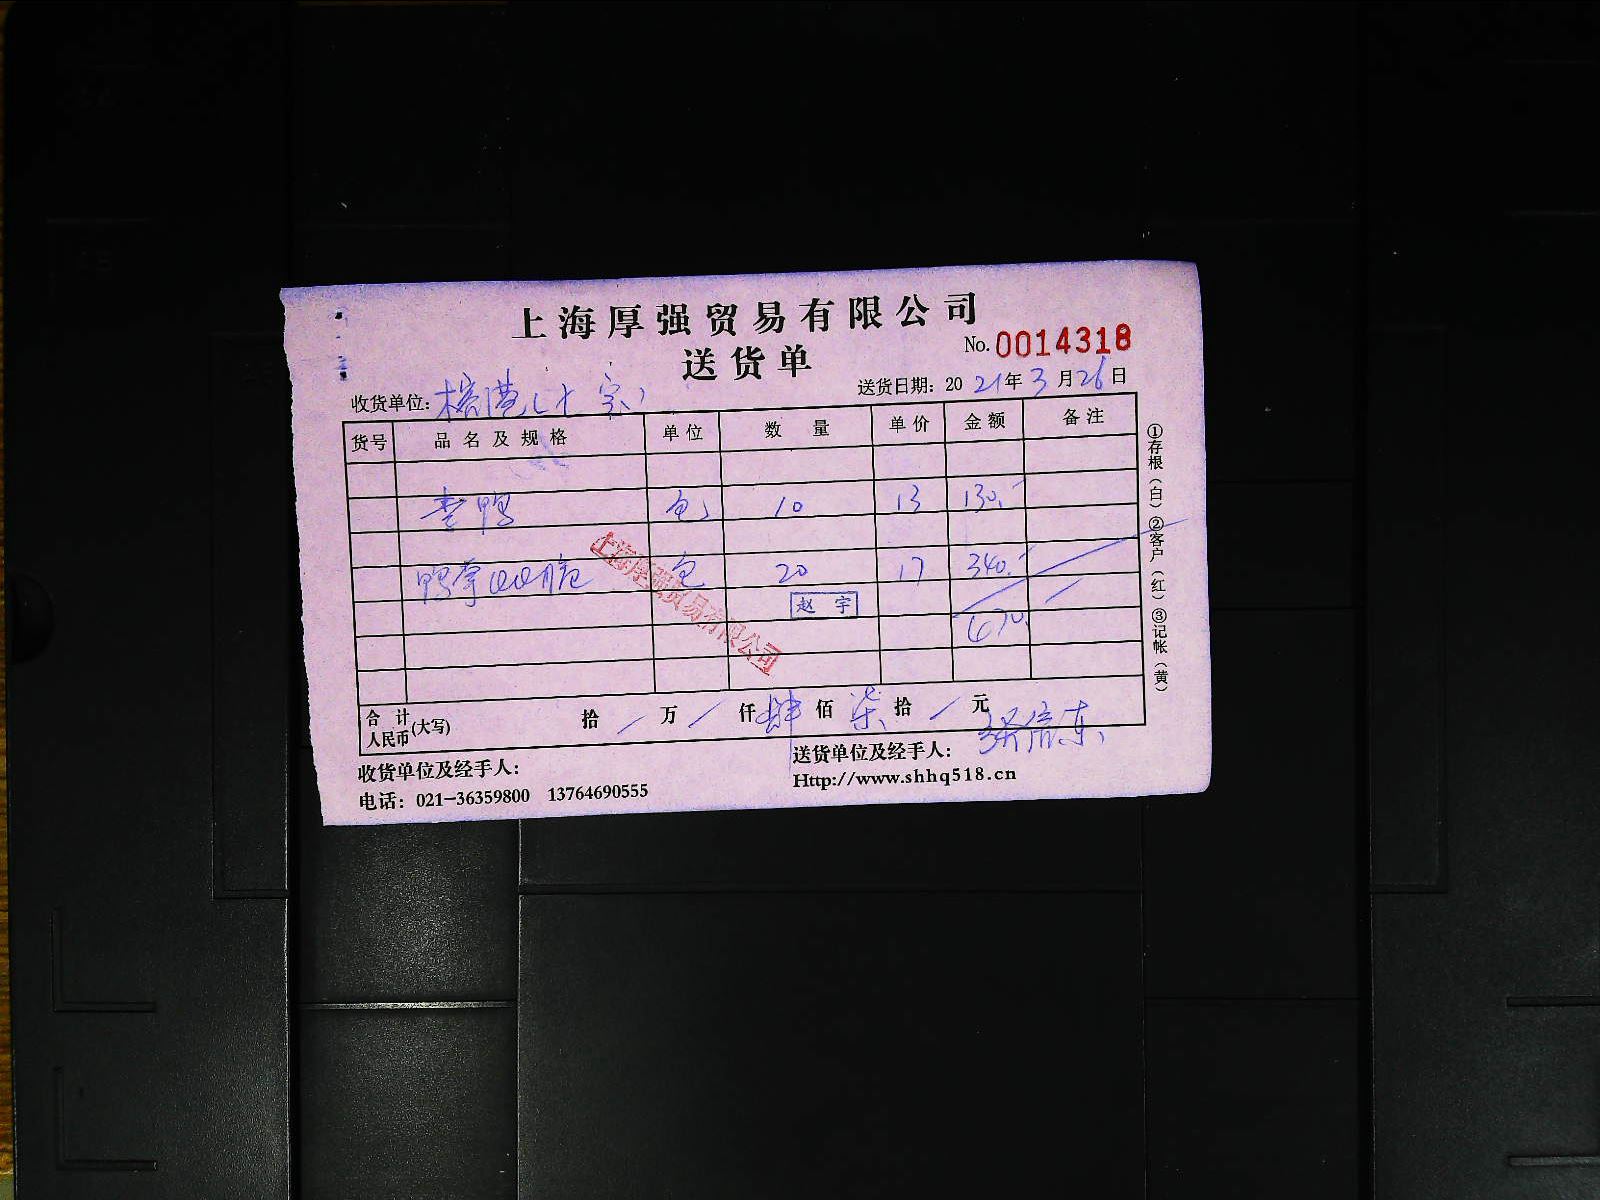 上海厚强贸易有限公司
送货单
No. 0014318
收货单位:
送货日期: 2021年3月26日
货号 品名及规格 单位 数量 单价 金额 备注
鸭 包 10 13 130.-
鸭掌 包 20 17 340.-
赵宇
上海厚强贸易有限公司
合计人民币(大写) 拾 / 万 / 仟 肆 佰 柒 拾 / 元
收货单位及经手人:
送货单位及经手人:
电话: 021-36359800 13764690555
Http://www.shhq518.cn
①存根(白)②客户(红)③记帐(黄)